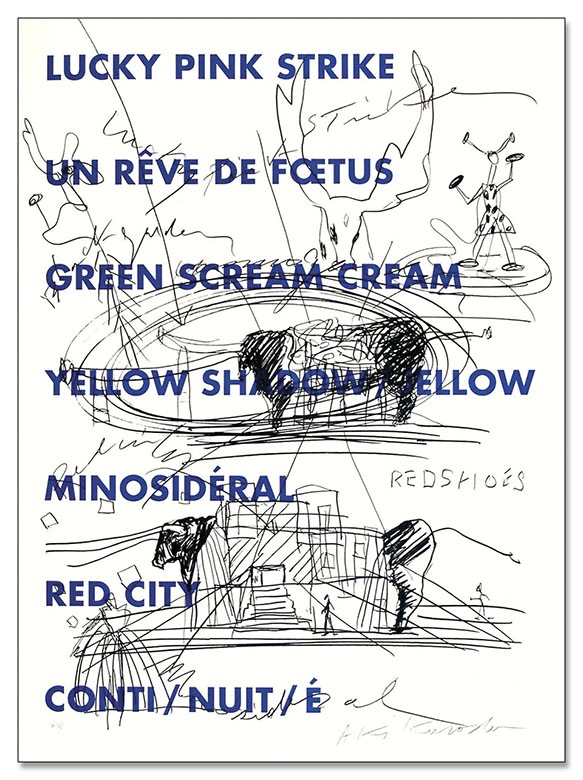 LUCKY PINK STRIKE
UN RÊVE DE FŒTUS
GREEN SCREAM CREAM
YELLOW SHADOW / JELLOW
MINOSIDÉRAL
REDSHOES
RED CITY
CONTI / NUIT / É
Aki Kuroda